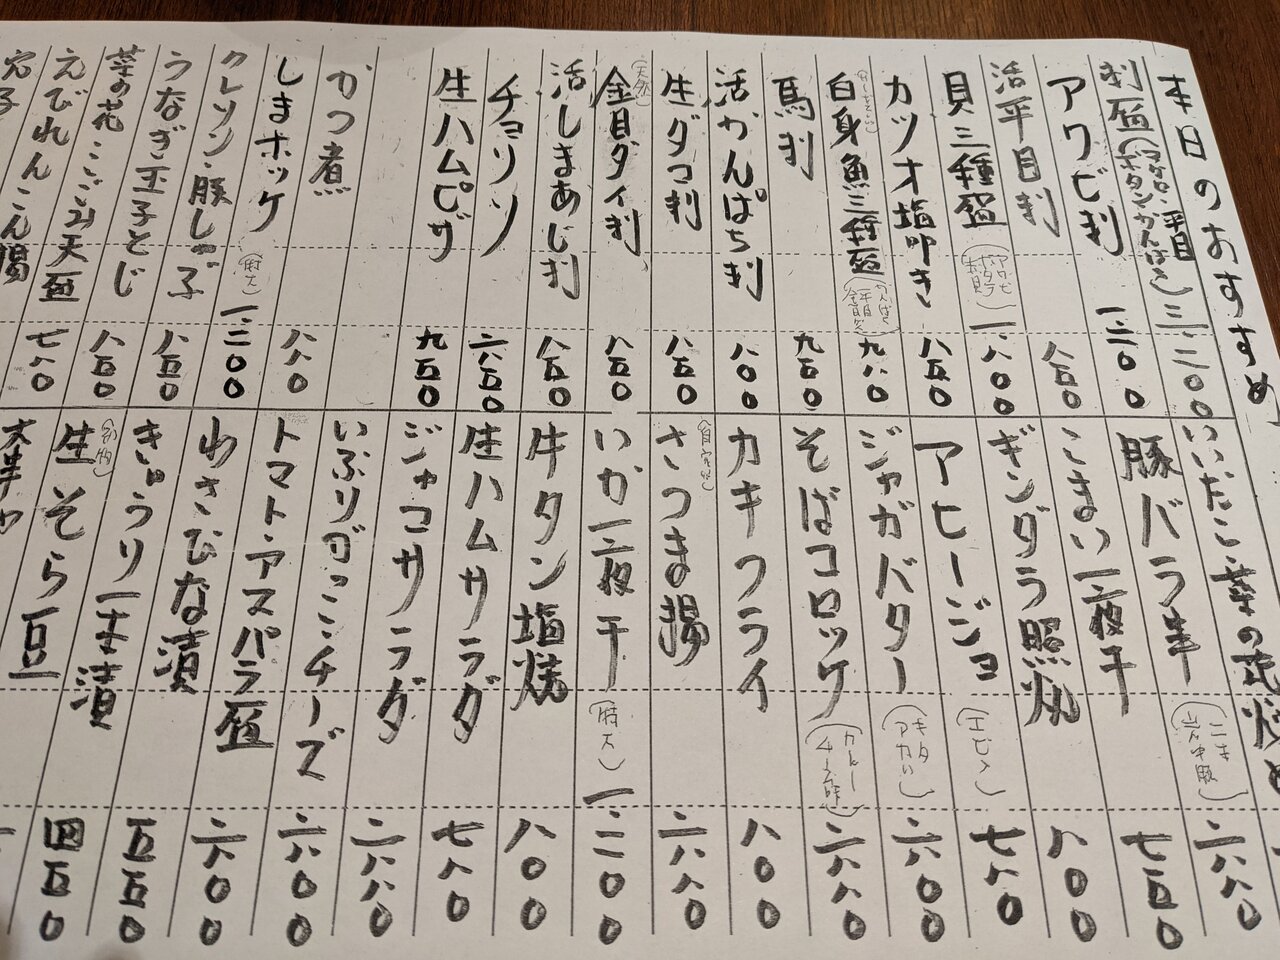 本日のおすすめ
刺盛(マグロ、平目 ボタン、かんぱち) 三、二〇〇
アワビ刺 一二〇〇
活平目刺 八五〇
貝三種盛 一、八〇〇
カツオ塩叩き 八五〇
白身魚三種盛(かんぱち 平目 金目ダイ) 九八〇
馬刺 九五〇
活かんぱち刺 八〇〇
生ダコ刺 八五〇
(天然)金目ダイ刺 八五〇
活しまあじ刺 八五〇
チョリソ 六五〇
生ハムピザ 九五〇
かつ煮 八八〇
しまホッケ(特大) 一、二〇〇
クレソン・豚しゃぶ 八五〇
うなぎ玉子とじ 八五〇
菜の花・こごみ天盛 七八〇
えびれんこん揚
穴子
いいだこ・菜の花炒め
豚バラ串(二本 岩中豚) 六八〇
こまい一夜干 七五〇
ギンダラ照焼 八〇〇
アヒージョ(エビ) 七八〇
ジャガバター(キタアカリ) 六〇〇
そばコロッケ 六八〇
カキフライ 八〇〇
(自家製)さつま揚 六八〇
いか一夜干(特大) 一、二〇〇
牛タン塩焼 八〇〇
生ハムサラダ 七八〇
ジャコサラダ 六八〇
いぶりがっこ・チーズ 六〇〇
トマト・アスパラ盛 六〇〇
わさびな漬 五五〇
きゅうり一本漬 四五〇
生そら豆